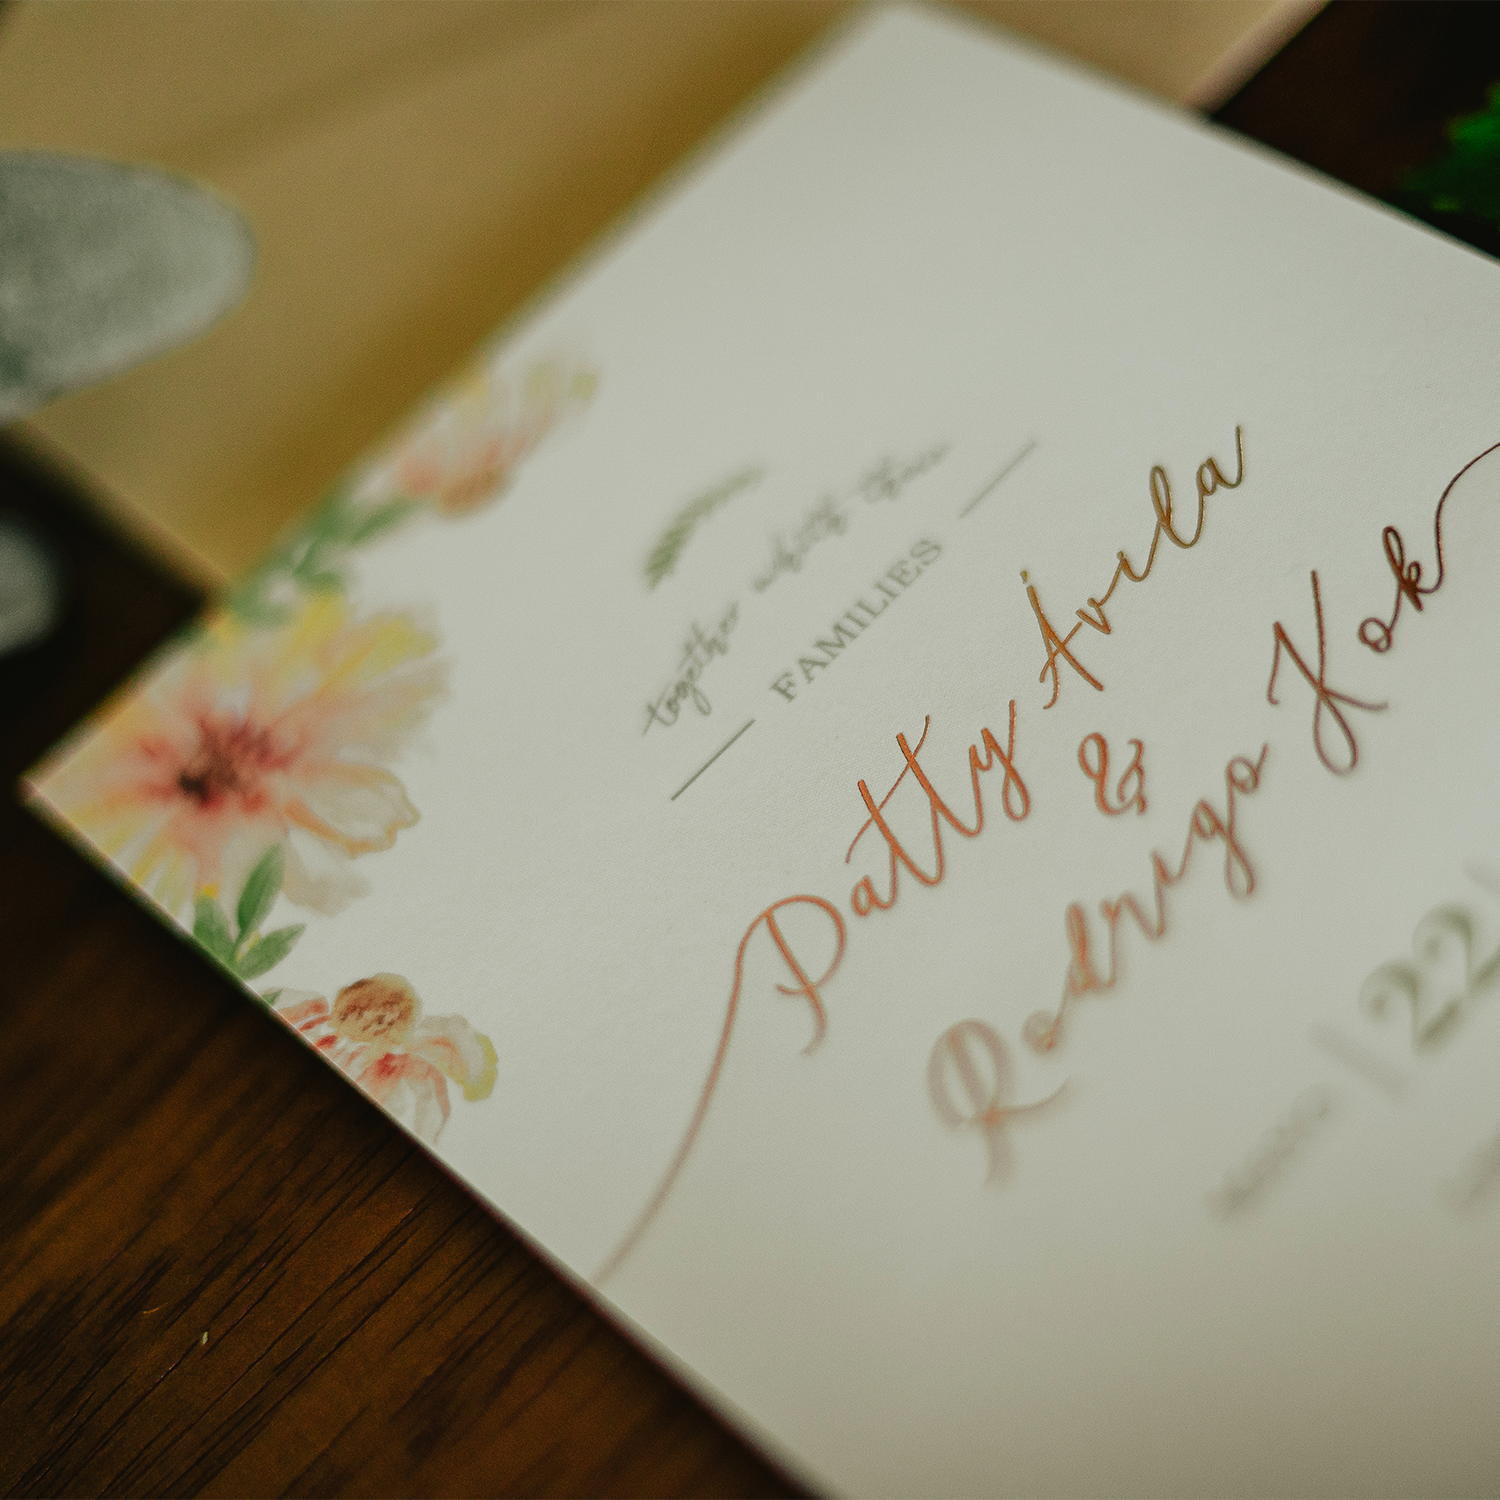 together with their
FAMILIES
Patty Avila
&
Rodrigo Kok
22